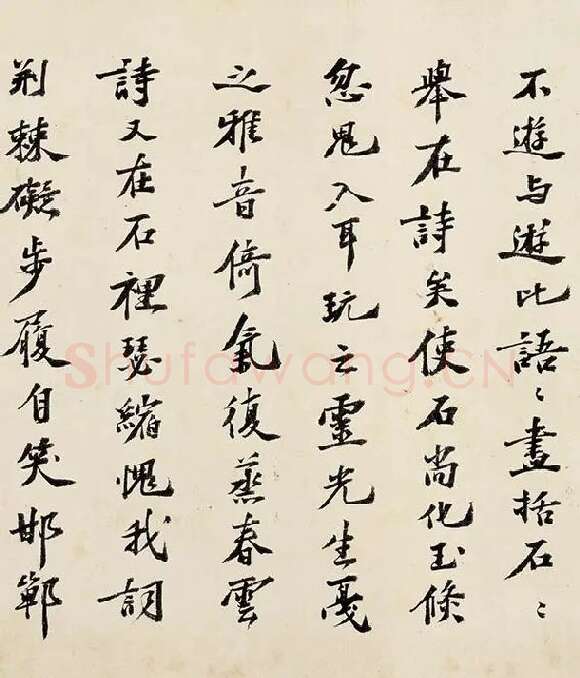 不遊与遊比語〻畫括石〻
舉在詩矣使石尚化玉倏
忽鬼入耳玩之靈光生戛
之雅音倚氣復蒸春雲
詩又在石裡瑟縮愧我詞
荆棘礙步履自笑邯鄲
Shufawang.CN